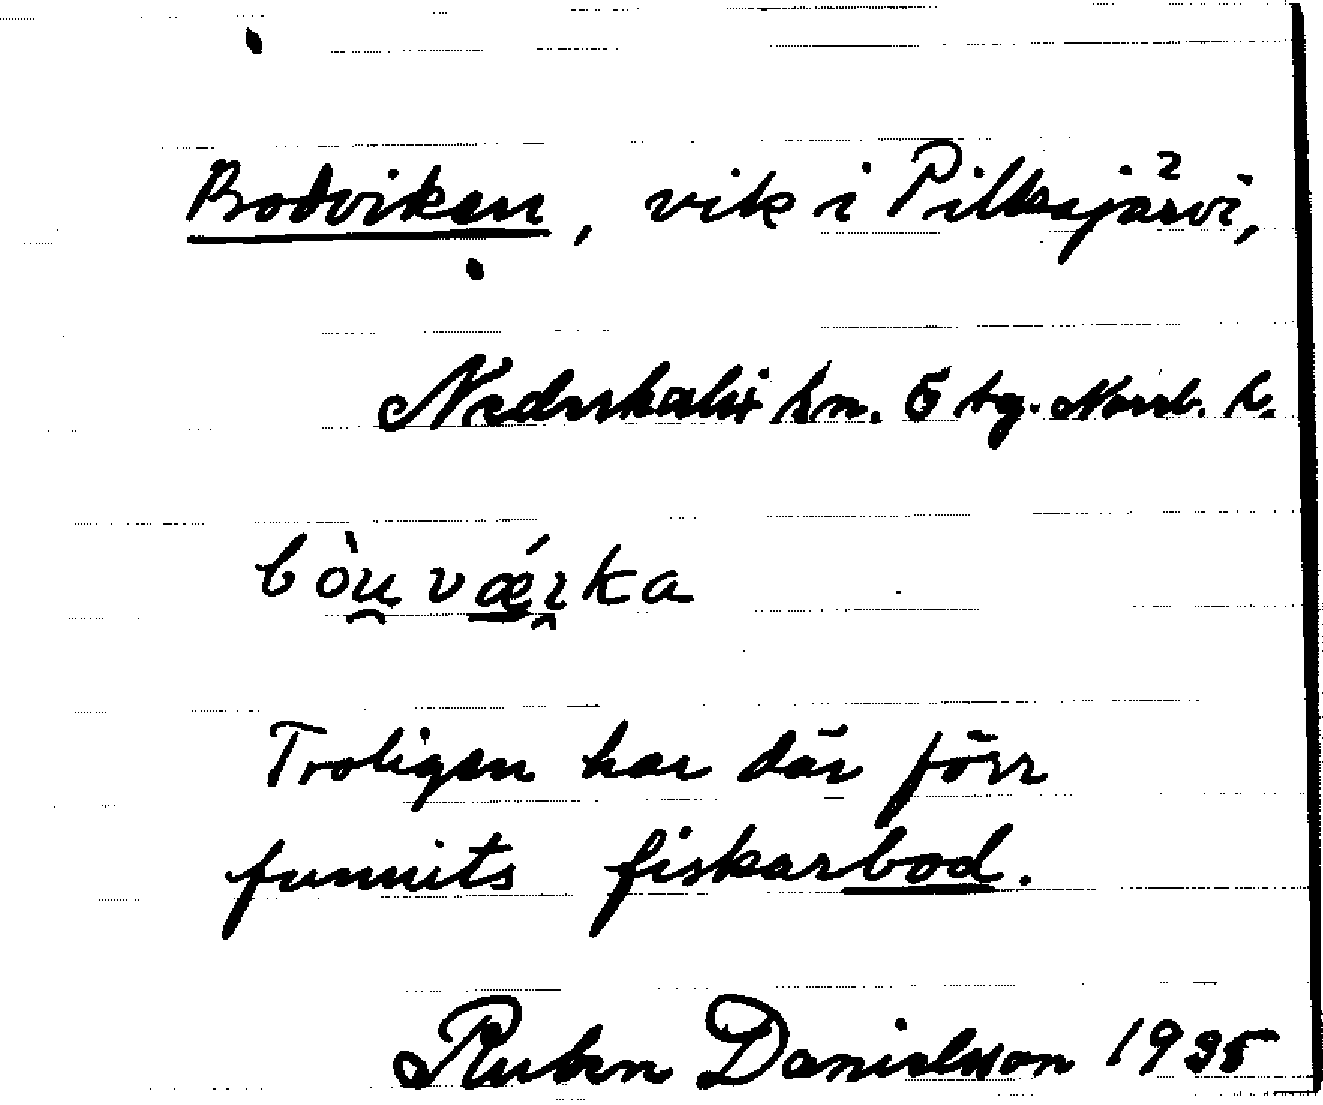 Bodviken, vik i Pilkajärvi,
Nederkalix sn. Ö tg. Norrb. l.
bòu̯vǽi̯ka
Troligen har där förr
funnits fiskarbod.
Ruben Danielsson 1935